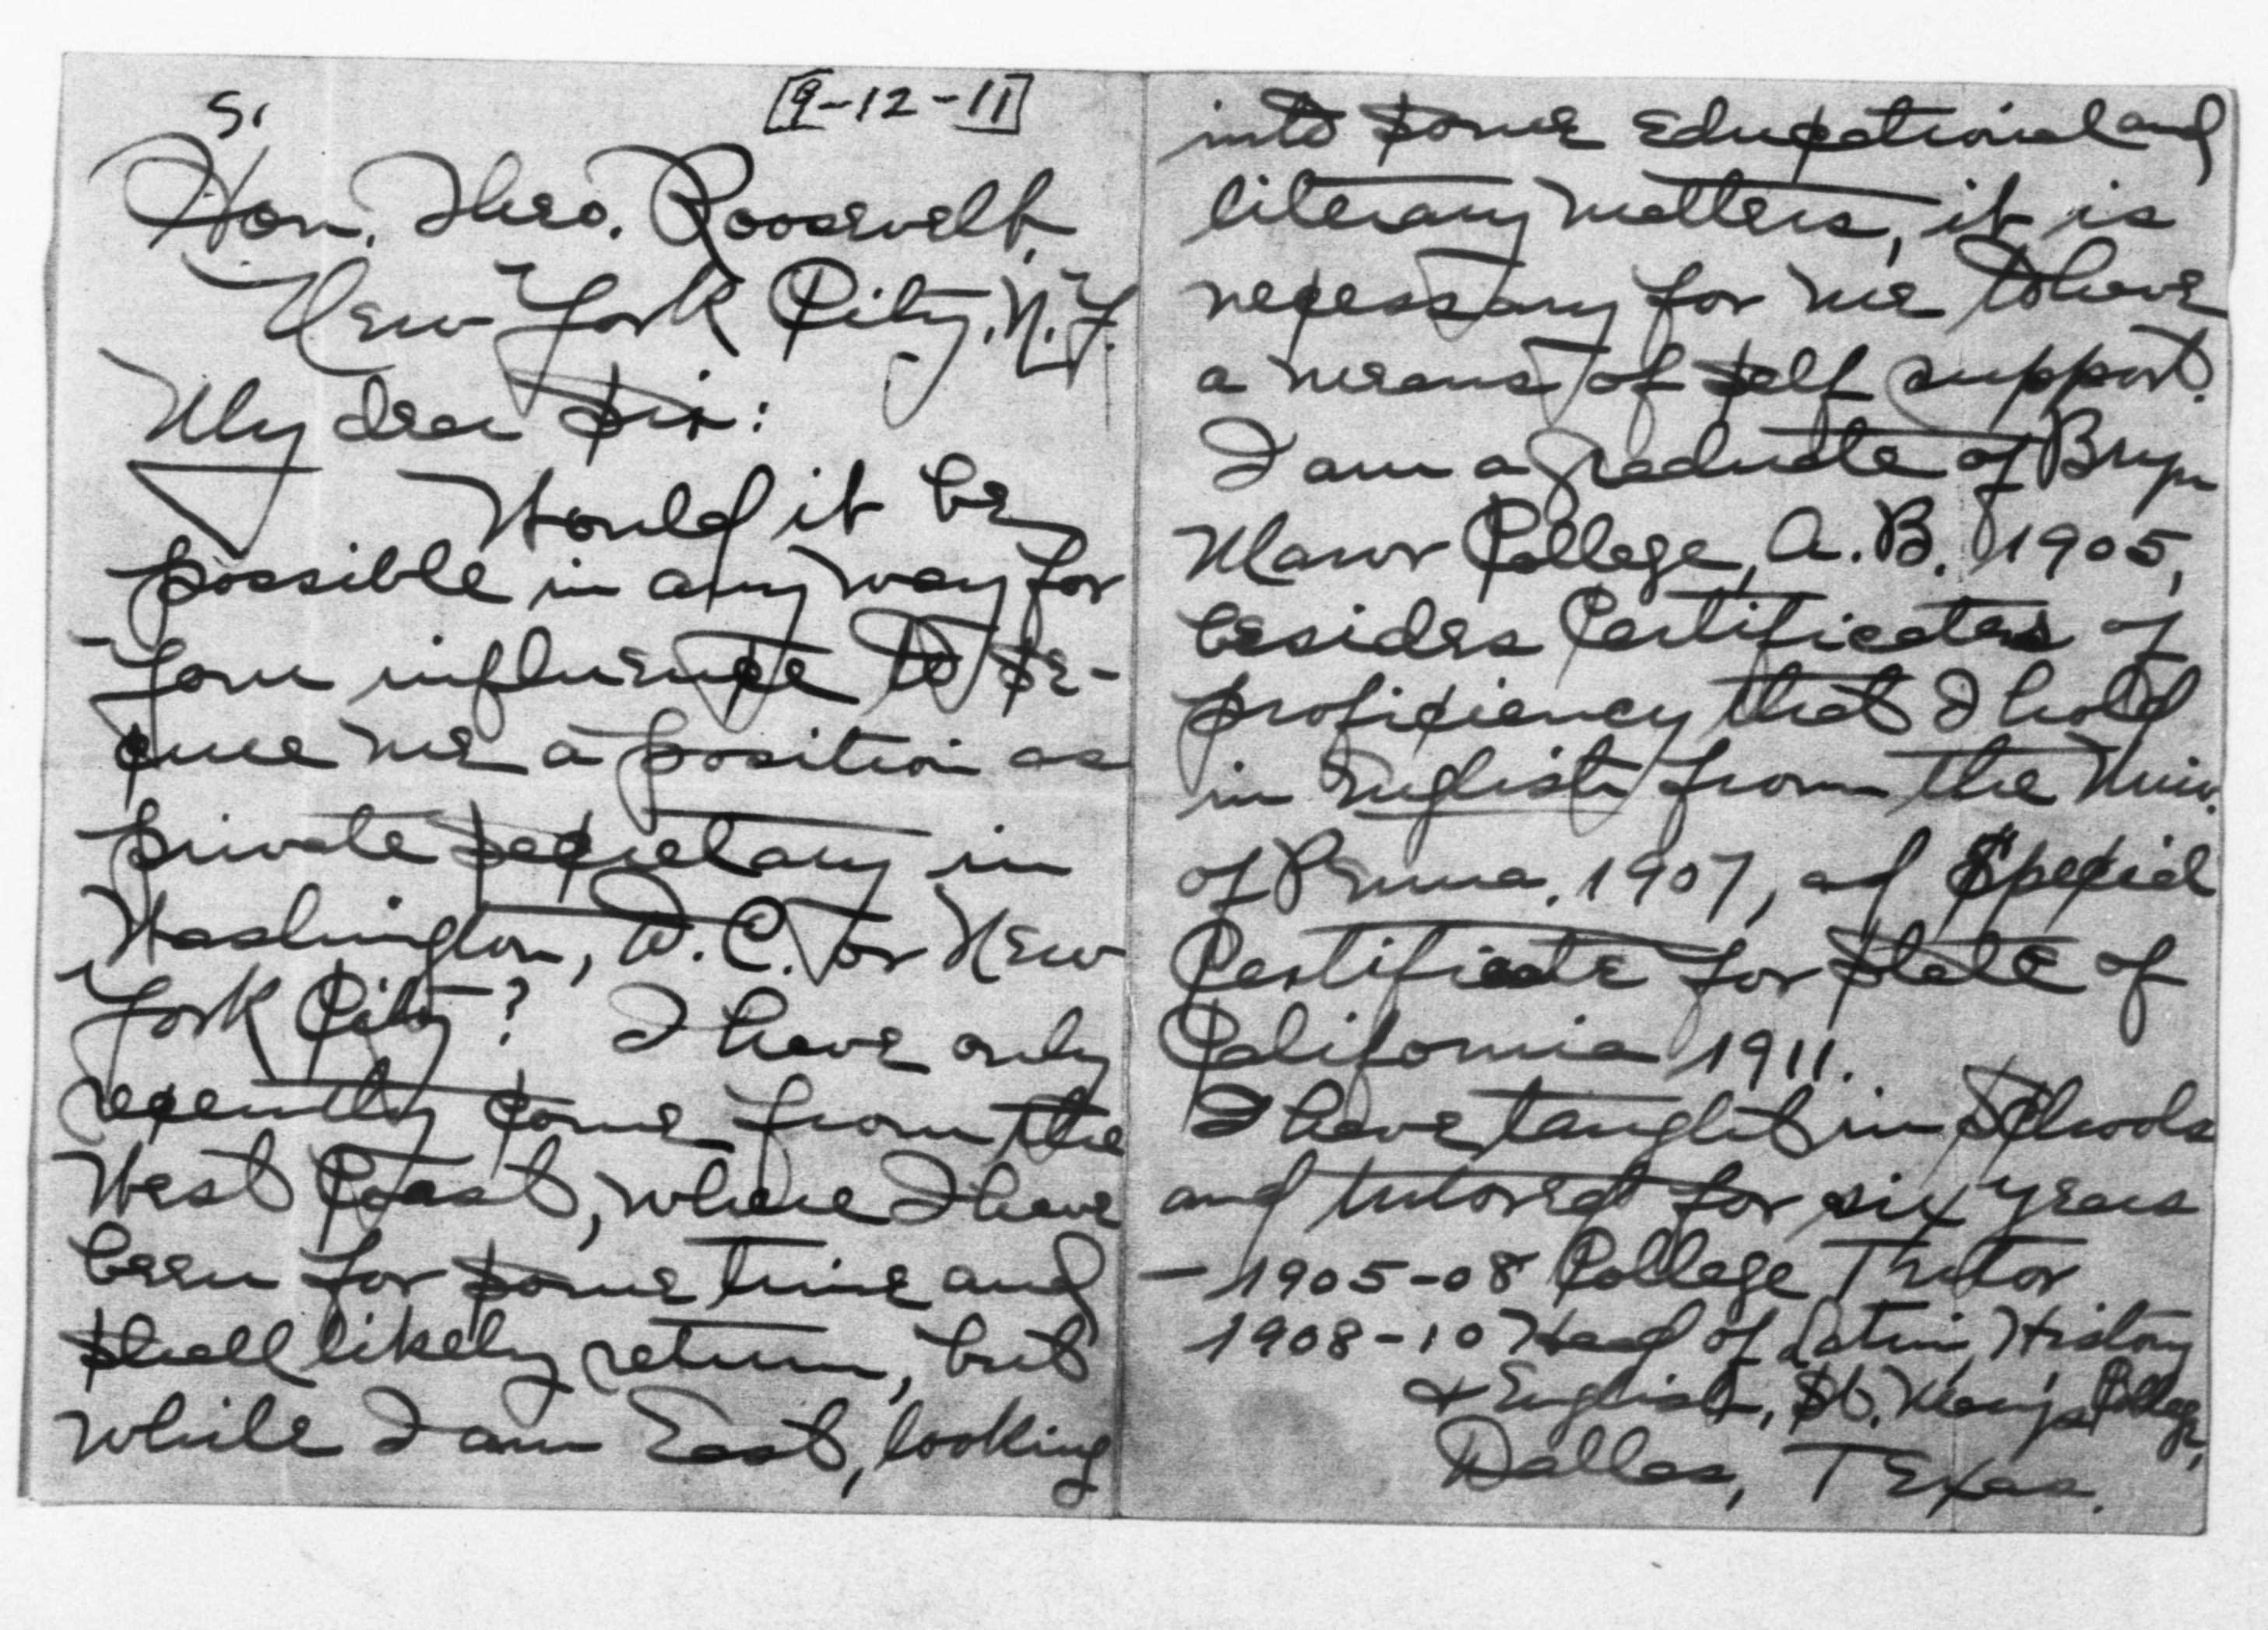 S,
[9-12-11]
Hon. Theo. Roosevelt,
New York City, N.Y.
My dear Sir:
Would it be
possible in any way for
your influence to se-
cure me a position as
private secretary in
Washington, D.C. or New
York City? I have only
recently come from the
West Coast, where I have
been for some time and
shall likely return, but
while I am East, looking
into some educational and
literary matters, it is
necessary for me to have
a means of self support.
I am a graduate of Bryn
Mawr College, A.B. 1905,
besides Certificates of
proficiency that I hold
in English from the Univ.
of Penna. 1907, and Special
Certificate for State of
California 1911.
I have taught in Schools
and tutored for six years
- 1905-08 College Tutor
1908-10 Head of Latin, History
& English, St. Mary's College,
Dallas, Texas.